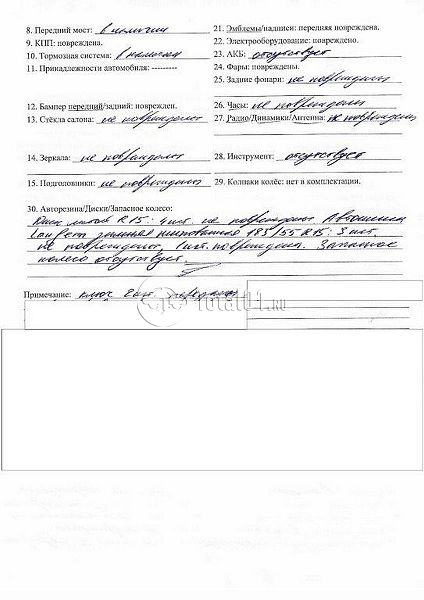 8. Передний мост: в наличии
9. КПП: повреждена.
10. Тормозная система: в наличии
11. Принадлежности автомобиля: ---------
12. Бампер передний/задний: поврежден.
13. Стёкла салона: не повреждены
14. Зеркала: не повреждены
15. Подголовники: не повреждены
21. Эмблемы/надписи: передняя повреждена.
22. Электрооборудование: повреждено.
23. АКБ: отсутствует
24. Фары: повреждены.
25. Задние фонари: не повреждены
26. Часы: не повреждены
27. Радио/Динамики/Антенна: не повреждены
28. Инструмент: отсутствует
29. Колпаки колёс: нет в комплектации.
30. Авторезина/Диски/Запасное колесо:
Диск литой R15: 4 шт. не повреждены. Автошина
зимняя шипованная 185/55 R15: 3 шт.
не повреждены, 1 шт. повреждена. Запасное
колесо отсутствует.
Примечание: ключ
Total01.RU